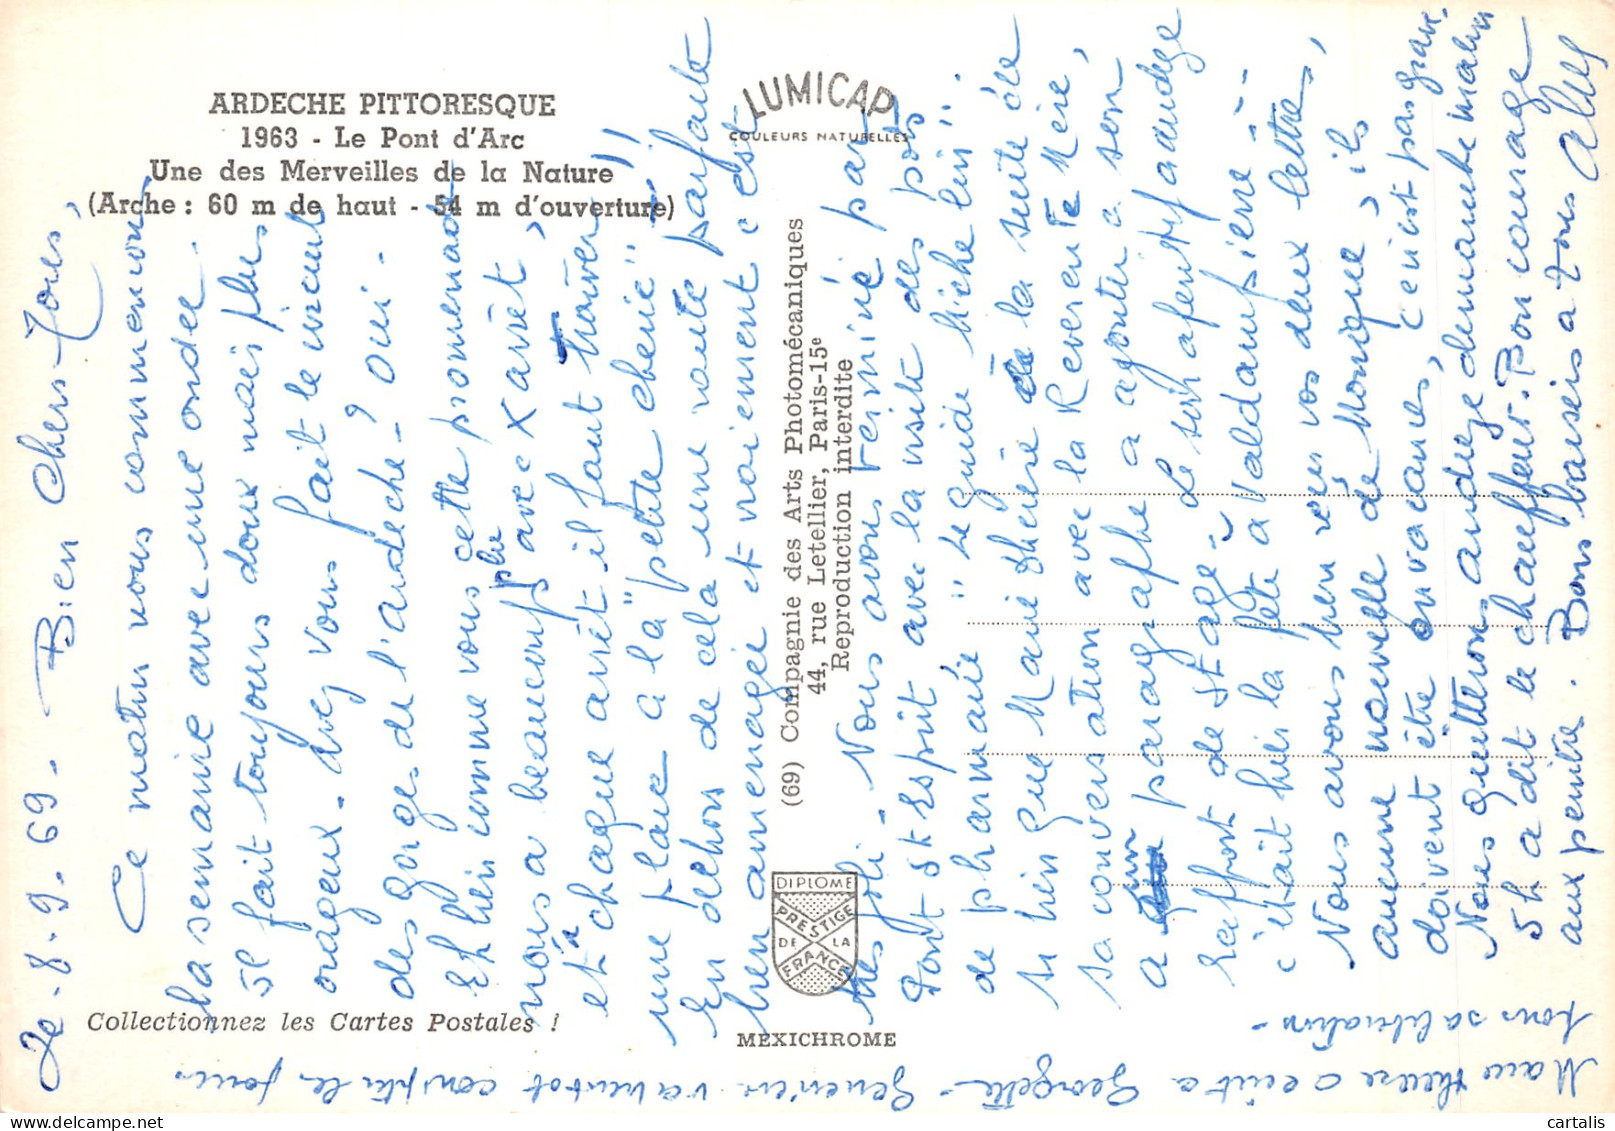 ARDECHE PITTORESQUE
1963 - Le Pont d'Arc
Une des Merveilles de la Nature
(Arche : 60 m de haut - 54 m d'ouverture)
LUMICAP
COULEURS NATURELLES
(69) Compagnie des Arts Photomécaniques
44, rue Letellier, Paris-15e
Reproduction interdite
DIPLOME
PRESTIGE
DE LA
FRANCE
MEXICHROME
Collectionnez les Cartes Postales !
Le - 8. 9. 69 - Bien Chers Tous,
Ce matin nous commencons
la semaine avec une ondée.
Il fait toujours doux mais plus
orageux. Avez vous fait le circuit
des gorges de l'ardèche ? Oui -
Eh bien comme vous cette promenade
nous a beaucoup plu avec X arrêt,
et à chaque arrêt il faut trouver
une place à la "petite cherie" !!
En dehors de cela une route parfaite
bien amenagée et vraiement c'est
très joli. Nous avons terminé par
Pont St Esprit avec la visite des pots
de pharmacie "le guide biche lui".
si bien que Marie Thérèse de la suite de
sa conversation avec la Reverente Mère,
a un paragraphe a ajouter a son
rapport de stage. Le soir aperitif audize
c'était hier la fête à Valdampierre -
Nous avons bien reçu vos deux lettres,
aucune nouvelle de Monique, ils
doivent être en vacances, c'est pas grave.
Nous quittons audize dimanche matin
St a dit le chauffeur. Bon courage
aux peintre. Bons baisers a tous
Marie Therese a écrit a Georgette - le force
pour sa libération -
cartalis